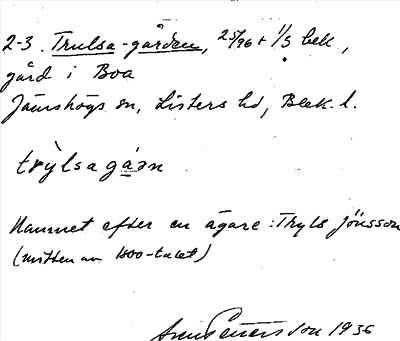 2-3. Trulsa-gården, 25/96 + 1/3 bek,
gård i Boa
Jämshögs sn, Listers hd, Blek. l.
trỳlsagá̱ən
Namnet efter en ägare: Tryls Jönsson
(mitten av 1800-talet)
Pettersson 1936